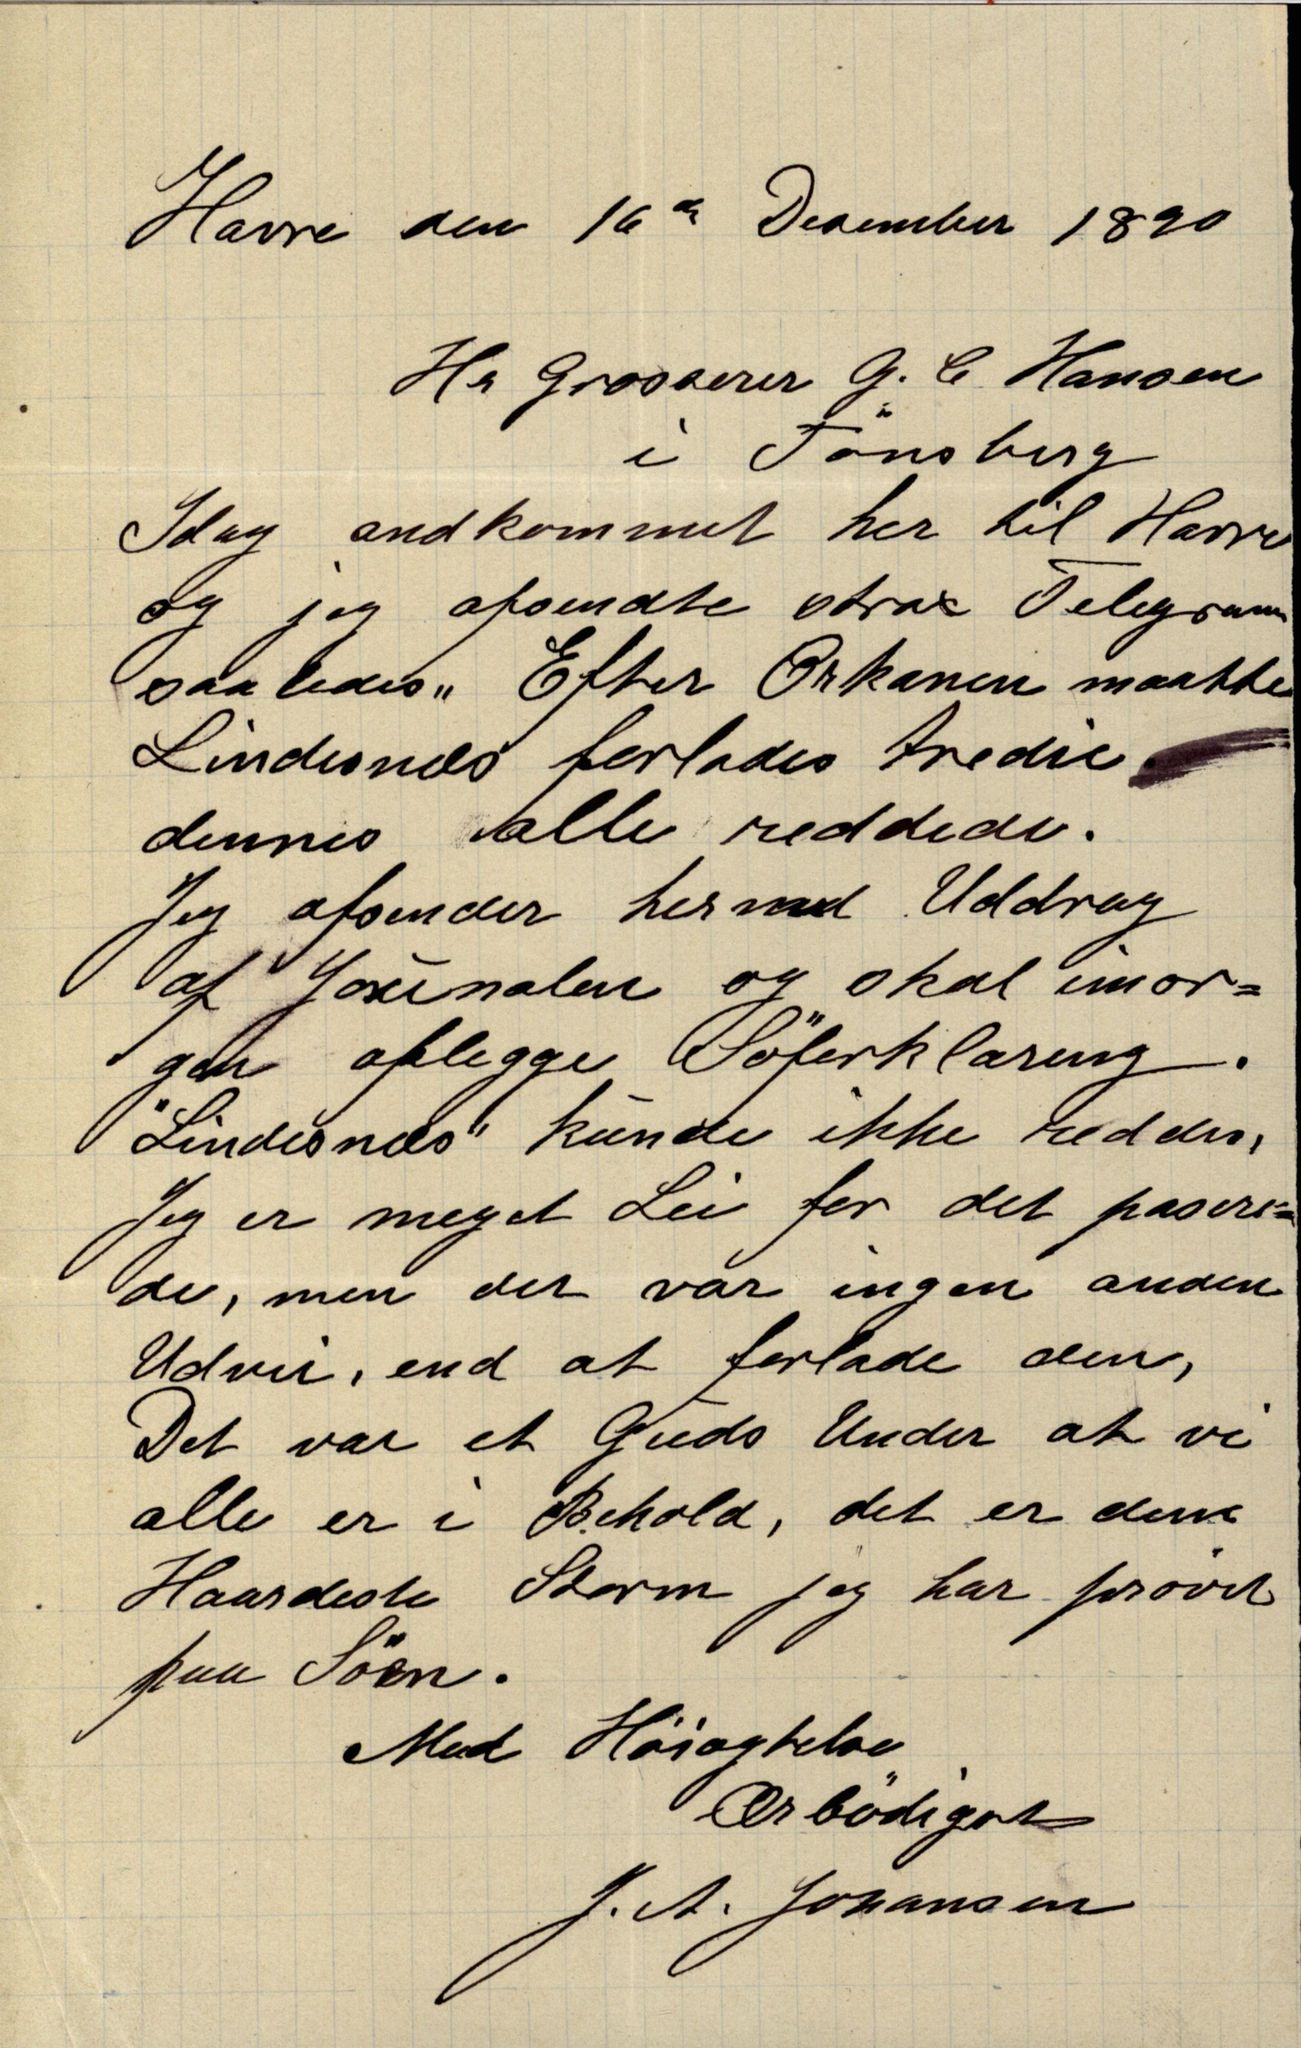 Havre den 16de Desember 1890
Hr Grosserer G. C Hansen
i Tönsberg
Idag andkommet her til Havre
og jeg afsendte strax Telegram
saaledes„ Efter Orkanen maatte
Lindesnæs forlades tredie.
dennes alle reddede.
Jeg afsender hermed Uddrag
af Journalen og skal imor=
gen aflegge Söforklaring.
"Lindesnæs" kunde ikke reddes,
Jeg er meget Lei for det pasere=
de, men der var ingen anden
Udvei, end at forlade den,
Det var et Guds Under at vi
alle er i Behold, det er den
Haardeste Storm jeg har prövet
paa Söen.
Med Höiagtelse
Ærbödigst
J. A. Johansen